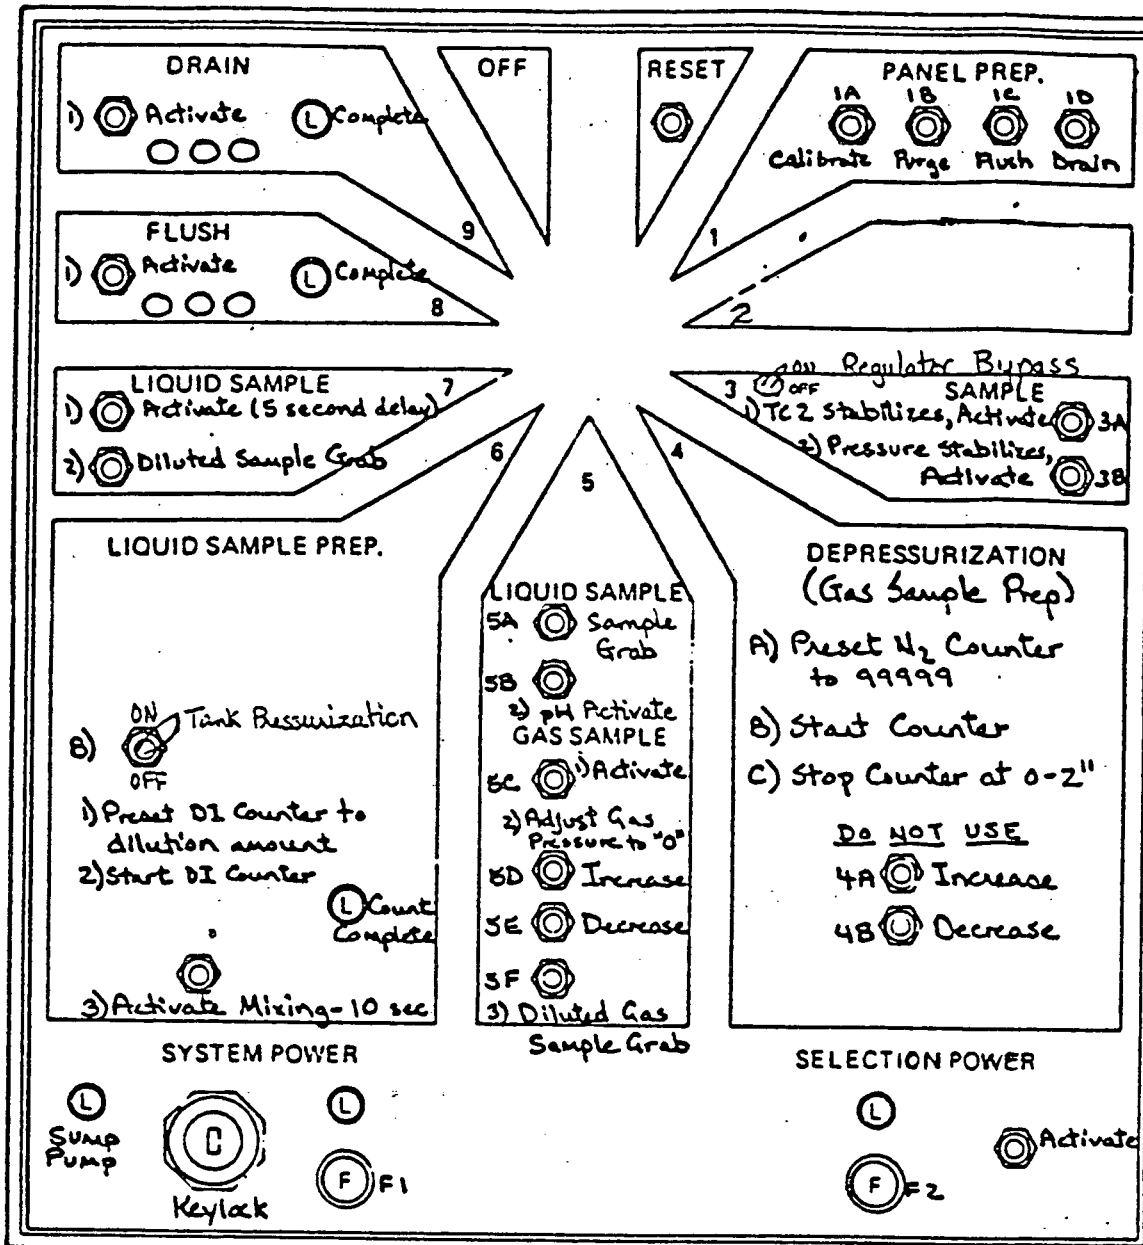 DRAIN
1) Activate
L Complete
OFF
RESET
PANEL PREP.
1A 1B 1C 1D
Calibrate Purge Flush Drain
9
1
FLUSH
1) Activate
L Complete
8
2
LIQUID SAMPLE
7
1) Activate (5 second delay)
2) Diluted Sample Grab
ON Regulator Bypass
OFF
3
SAMPLE
1) TC2 Stabilizes, Activate 3A
2) Pressure Stabilizes,
Activate 3B
6
5
4
LIQUID SAMPLE PREP.
ON
B) Tank Pressurization
OFF
1) Preset DI Counter to
dilution amount
2) Start DI Counter
L Count
Complete
3) Activate Mixing - 10 sec
LIQUID SAMPLE
5A Sample
Grab
5B
2) pH Activate
GAS SAMPLE
5C 1) Activate
2) Adjust Gas
Pressure to "0"
5D Increase
5E Decrease
5F
3) Diluted Gas
Sample Grab
DEPRESSURIZATION
(Gas Sample Prep)
A) Preset N2 Counter
to 99999
B) Start Counter
C) Stop Counter at 0-2"
DO NOT USE
4A Increase
4B Decrease
SYSTEM POWER
L
Sump
Pump
C
Keylock
L
F F1
SELECTION POWER
L
Activate
F F2